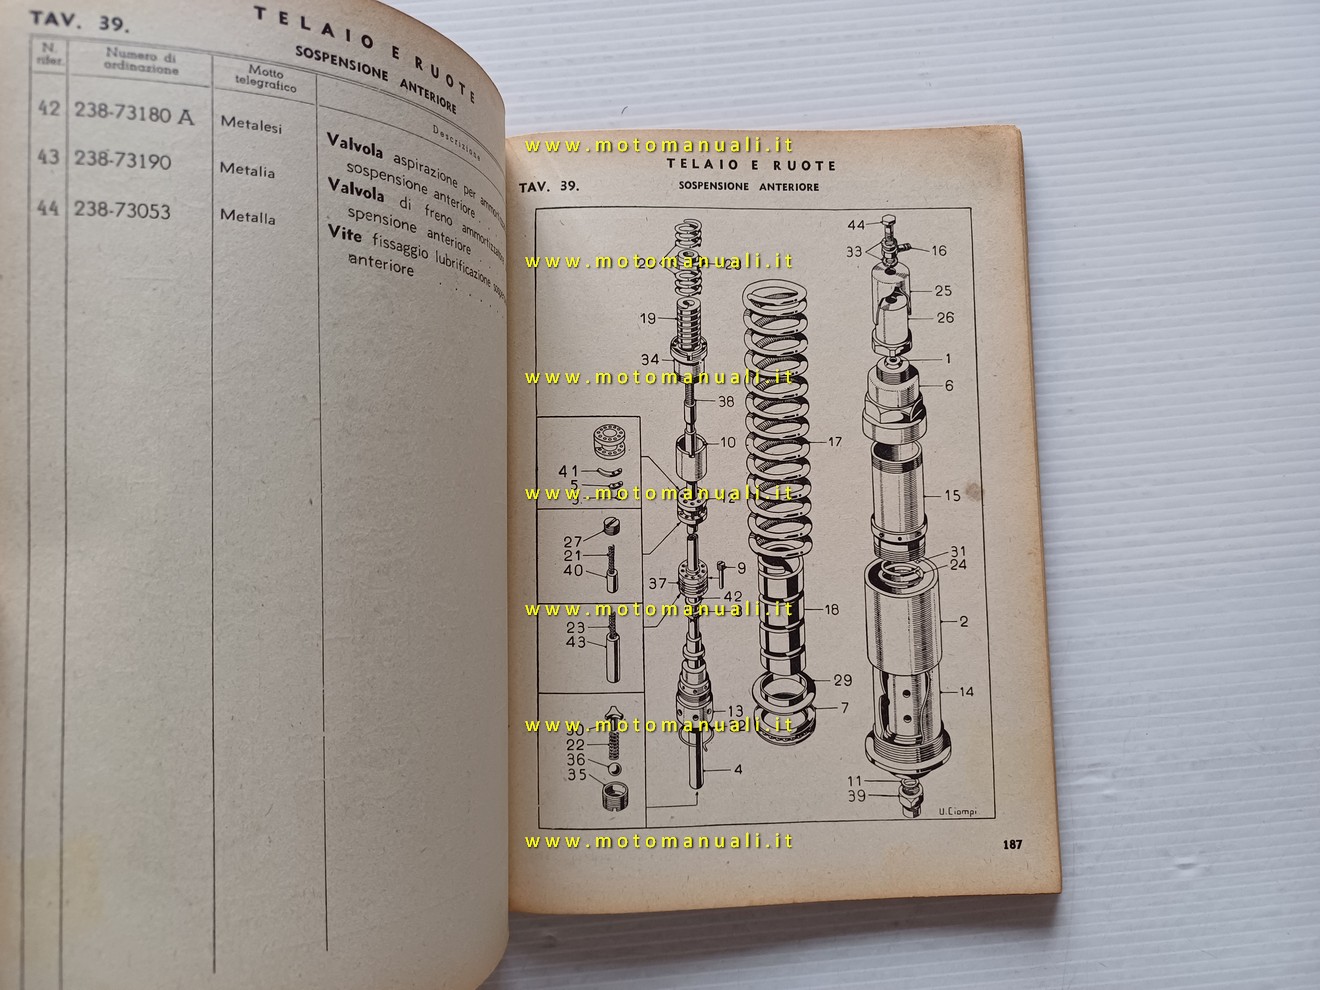 TAV. 39.
TELAIO E RUOTE
SOSPENSIONE ANTERIORE
N. rifer.
Numero di ordinazione
Motto telegrafico
Descrizione
42 238-73180 A Metalesi Valvola aspirazione per
sospensione anteriore . .
43 238-73190 Metalia Valvola di freno
spensione anteriore . .
44 238-73053 Metalla Vite fissaggio lubrificazione
anteriore . . . . .
www.motomanuali.it
TELAIO E RUOTE
TAV. 39.
SOSPENSIONE ANTERIORE
44
33
16
www.motomanuali.it
25
19
26
34
1
www.motomanuali.it
6
38
10
17
41
5
www.motomanuali.it
15
27
21
40
9
37
42
31
24
www.motomanuali.it
18
23
43
2
29
7
14
13
www.motomanuali.it
22
36
35
4
11
39
U. Ciampi
www.motomanuali.it
187